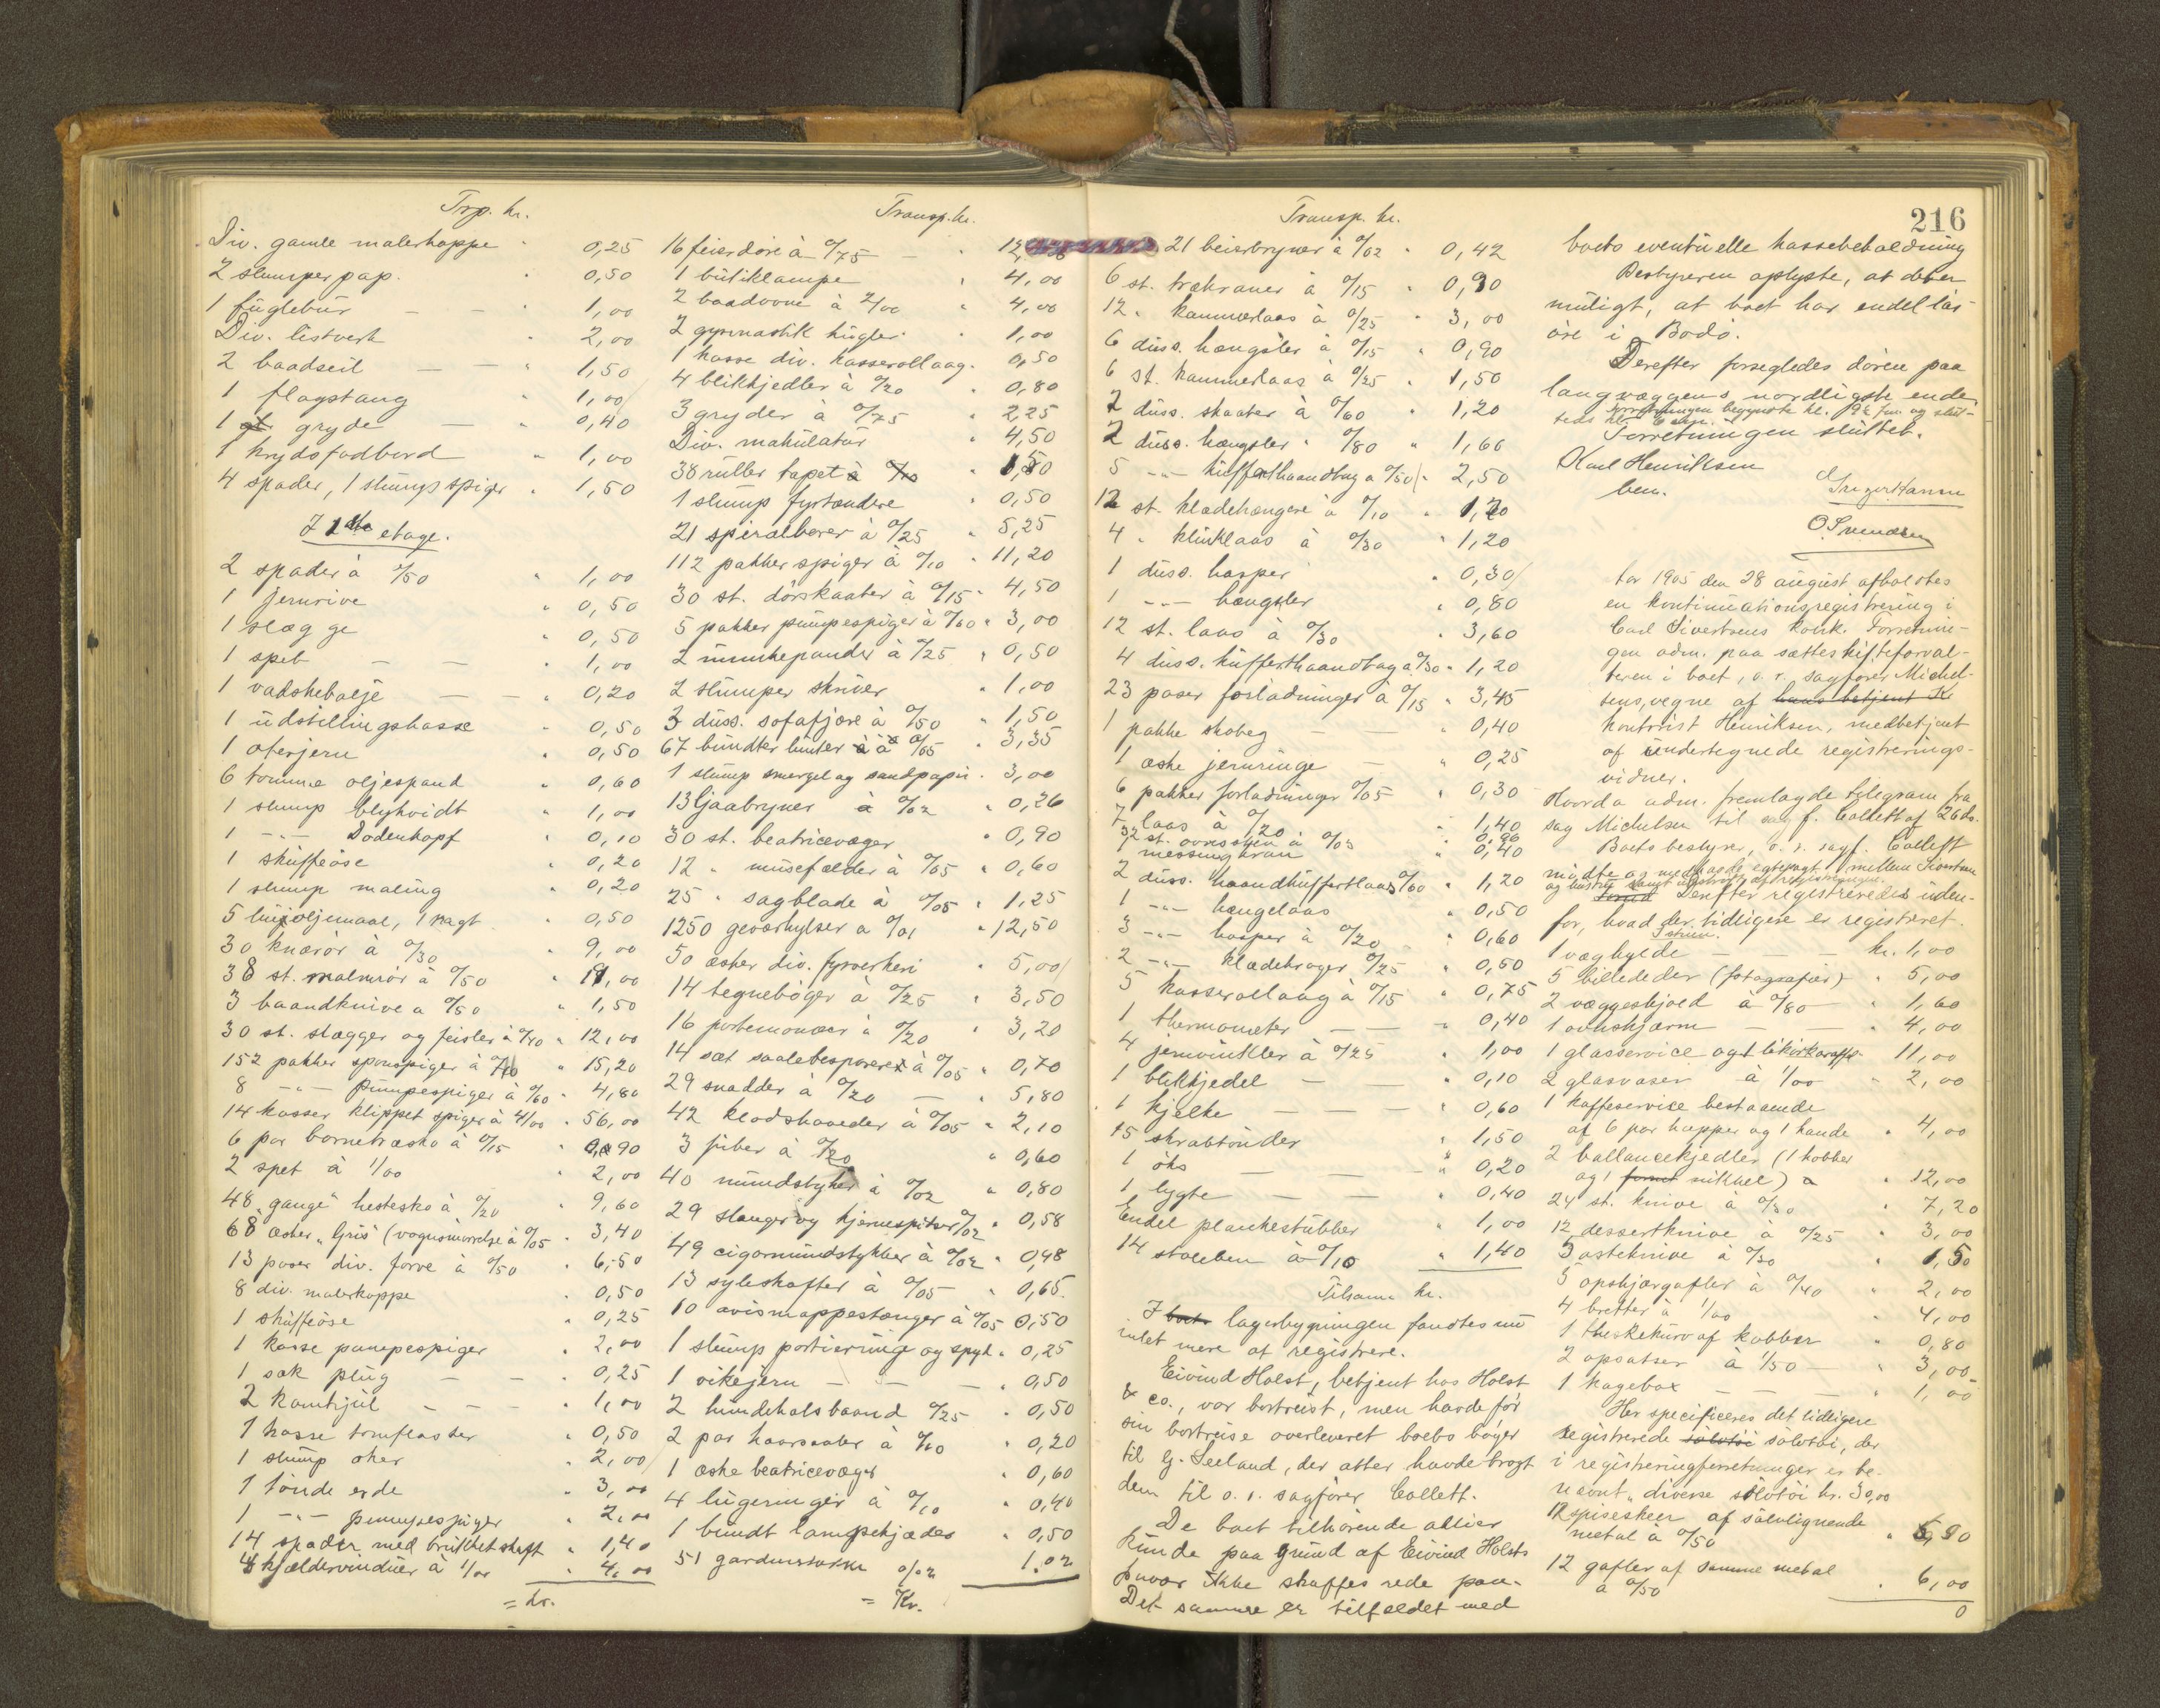 Trp. kr.
Div. gamle malerkoppe " 0,25
2 slumper pap. " 0,50
1 fuglebur — — " 1,00
Div. listverk " 2,00
2 baadseil — — " 1,50
1 flagstang " 1,00
1 gryde — " 0,40
1 krydsfodbord " 1,00
4 spader, 1 slump spiger " 1,50
I 1ste etage.
2 spader à 0/50 " 1,00
1 jernrive " 0,50
1 slægge " 0,50
1 spet — — " 1,00
1 vadskebalje — — " 0,20
1 udstillingskasse " 0,50
1 oterjern " 0,50
6 tomme oljespand " 0,60
1 slump blykvidt " 1,00
1 -"- Dodenkopf " 0,10
1 skuffeöse " 0,20
1 slump maling " 0,20
5 linjoljemaal, 1 vægt " 0,50
30 knærör à 0/30 " 9,00
38 st. malmrör à 0/50 " 19,00
3 baandknive a 0/50 " 1,50
30 st. slægger og feisler à 0/40 " 12,00
152 pakker sponspiger à 0/10 " 15,20
8 -"- pumpespiger à 0/60 " 4,80
14 kasser klippet spiger à 4/00 " 56,00
6 par bornetræsko à 0/15 " 0,90
2 spet à 1/00 " 2,00
48 "gange" hestesko à 0/20 " 9,60
68 æsker "Gris" (vognsmörrelse à 0/05 " 3,40
13 poser div. farve à 0/50 " 6,50
8 div. malerkoppe " 0,50
1 skuffeöse " 0,25
1 kasse pumpespiger " 2,00
1 sæk plug — — " 0,25
2 kamhjul — — — " 1,00
1 kasse tomflasker " 0,50
1 slump oker " 2,00
1 tönde erde " 3,00
1 -"- pumpespiger " 2,00
14 spader med brukket skaft " 1,40
4 kjældervinduer à 1/00 " 4,00
= kr.
Transp. kr.
16 feierdöre à 0/75 — " 12,00
1 butiklampe " 4,00
2 baadovne à 2/00 " 4,00
2 gymnastik kugler " 1,00
1 kasse div. kasserollaag " 0,50
4 blikkjedler à 0/20 " 0,80
3 gryder à 0/75 " 2,25
Div. makulatur " 4,50
38 ruller tapet " 1,50
1 slump fyrtændere " 0,50
21 spiralborer à 0/25 " 5,25
112 pakker spiger à 0/10 " 11,20
30 st. dörskaater à 0/15 " 4,50
5 pakker pumpespiger à 0/60 " 3,00
2 munkepander à 0/25 " 0,50
2 slumper skruer " 1,00
3 duss. sofafjære à 0/50 " 1,50
67 bundter lunter à 0/05 " 3,35
1 slump smergel og sandpapir " 3,00
13 ljaabryner à 0/02 " 0,26
30 st. beatricevæger " 0,90
12 " musefælder à 0/05 " 0,60
25 " sagblade à 0/05 " 1,25
1250 geværhylser a 0/01 " 12,50
50 æsker div. fyrverkeri " 5,00
14 tegneböger à 0/25 " 3,50
16 portemonæer à 0/20 " 3,20
14 sæt saalebesparere à 0/05 " 0,70
29 snadder à 0/20 — " 5,80
42 klodshoveder à 0/05 " 2,10
3 piber à 0/20 " 0,60
40 mundstykker à 0/02 " 0,80
29 slanger og hjernespitser 0/02 " 0,58
49 cigarmundstykker à 0/02 " 0,98
13 syleskafter à 0/05 " 0,65
10 avismappestænger à 0/05 0,50
1 slump portierringe og spyl " 0,25
1 vikejern — — — " 0,50
2 hundehalsbaand 0/25 " 0,50
2 par haarsaaler à 0/10 " 0,20
1 æske beatricevæger " 0,60
4 lugeringer à 0/10 " 0,40
1 bundt lampekjæder " 0,50
51 gardinstokke 0/02 1,02
= Kr.
Transp. kr.
21 beisebryner à 0/02 " 0,42
6 st. trækraner à 0/15 " 0,90
12 " kammerlaas à 0/25 " 3,00
6 duss. hængsler à 0/15 " 0,90
6 st. kammerlaas à 0/25 " 1,50
2 duss. skaater à 0/60 " 1,20
2 duss. hængsler " 0/80 " 1,60
5 -"- kufferthaandtag a 0/50 " 2,50
12 st. klædehængere à 0/10 " 1,20
4 " klinklaas à 0/30 " 1,20
1 duss. hasper " 0,30
1 -"- hængsler " 0,80
12 st. laas à 0/30 " 3,60
4 duss. kufferthaandtag à 0/30 " 1,20
23 poser forladninger à 0/15 " 3,45
1 pakke skobeg — — " 0,40
1 æske jernringe — " 0,25
6 pakker forladninger 0/05 " 0,30
7 laas à 0/20 " 1,40
32 st. à 0/03 " 0,96
1 messingkran " 0,40
2 duss. haandkuffertlaas 0/60 " 1,20
1 -"- hængelaas " 0,50
3 -"- hasper à 0/20 " 0,60
2 -"- klædekroger 0/25 " 0,50
5 kasserollaag à 0/15 " 0,75
1 thermometer — — " 0,40
4 jernvinkler à 0/25 " 1,00
1 blikkjedel — " 0,10
1 kjelke — — — " 0,60
15 skrabtönder " 1,50
1 öks — — — " 0,20
1 lygte — — " 0,40
Endel plankestubber " 1,00
14 stolben à 0/10 " 1,40
Tilsam. kr.
I boets lagerbygningen fandtes nu
intet mere at registrere.
Eivind Holst, betjent hos Holst
& co., var bortreist, men havde för
sin bortreise overleveret boets böger
til lj. Seeland, der atter havde bragt
dem til o. r. sagförer Collett.
De boet tilhörende aktier
kunde paa grund af Eivind Holsts
fravær ikke skaffes rede paa.
Det samme er tilfældet med
216
boets eventuelle kassebeholdning
Bestyreren oplyste, at det er
muligt, at boet har endel lös-
öre i Bodö.
Derefter forsegledes dören paa
langvæggens nordligste ende.
Forretningen begyndte kl. 9½ fm. og slut-
tedes kl. 6 em.
Forretningen sluttet.
Karl Henriksen
bem.
Greger Hansen
O. Svendsen
Aar 1905 den 28 august afholdtes
en kontinuationsregistrering i
Carl Sivertsens konk. Forretnin-
gen adm. paa sætteskifteforval-
teren i boet, o. r. sagförer Michel-
sens, vegne af hans betjent K
kontorist Henriksen, medbetjent
af undertegnede registrerings-
vidner.
Hvorda adm. fremlagde telegram fra
sag. Michelsen til sagf. Collett af 26 ds.
Boets bestyrer, o. r. sagf. Collett
mödte og medhavde egtepagt mellem Sivertsen
og hustru samt af registreringen.
Derefter registreredes uden-
for, hvad der tidligere er registreret.
I stuen.
1 væghylde — — — kr. 1,00
5 billeder (fotografier) " 5,00
2 væggeskjold à 0/80 " 1,60
1 ovnskjærm — — " 4,00
1 glasservice og 1 likörkaraffe " 11,00
2 glasvaser à 1/00 " 2,00
1 kaffeservice bestaaende
af 6 par kopper og 1 kande " 4,00
2 ballancekjedler (1 kobber
og 1 nikkel) " 12,00
24 st. knive à 0/30 " 7,20
12 dessertknive à 0/25 " 3,00
5 osteknive à 0/30 " 1,50
5 opskjærgafler à 0/40 " 2,00
4 bretter à 1/00 " 4,00
1 theskekurv af kobber " 0,80
2 opsatser à 1/50 — " 3,00
1 kagebox — — — " 1,00
Her specificeres det tidligere
registrerede sölvtöi sölvtöi, der
i registreringsforretninger er be-
nævnt "diverse sölvtöi kr. 30,00
spiseskeer af sölvlignende
metal à 0/50 "
12 gafler af samme metal
à 0/50 " 6,00